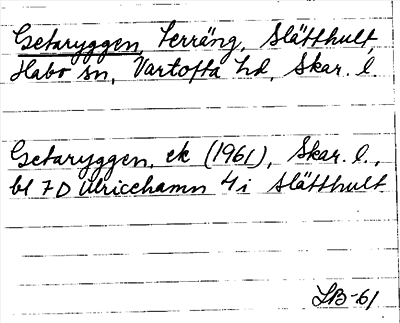 Getaryggen, terräng, Slätthult,
Habo sn, Vartofta hd, Skar. l.
Getaryggen, ek (1961), Skar. l.,
bl 7D Ulricehamn 4i Slätthult.
LB-61